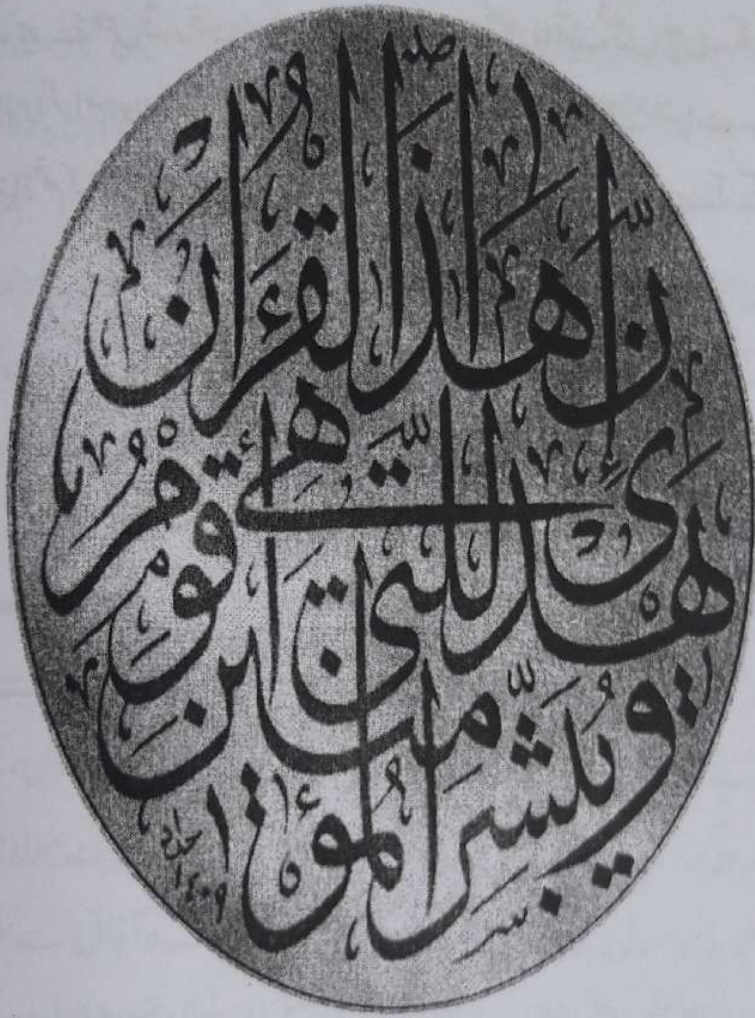 إِنَّ هَٰذَا الْقُرْآنَ
يَهْدِي لِلَّتِي هِيَ أَقْوَمُ
وَيُبَشِّرُ الْمُؤْمِنِينَ
١٤٠٩